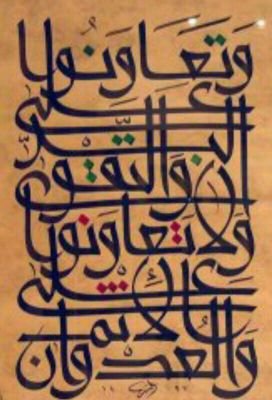 وَتَعَاوَنُوا
عَلَى
البِرِّ
وَالتقوى
وَلا تَعاوَنوا
عَلَى
الاثم
وَالعُدوَان